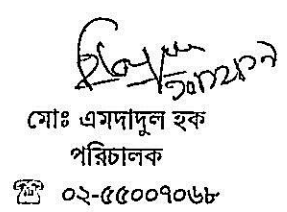 মোঃ এমদাদুল হক
পরিচালক
☎ ০২-৫৫০০৭০৬৮